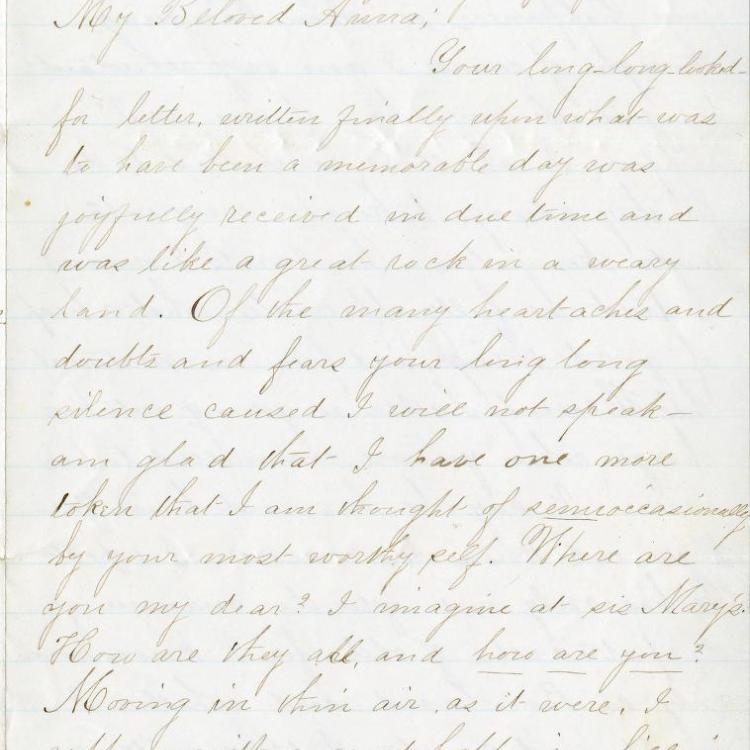 My Beloved Anna;
Your long-long-looked-
for letter, written finally upon what was
to have been a memorable day was
joyfully received in due time and
was like a great rock in a weary
land. Of the many heart-aches and
doubts and fears your long long
silence caused I will not speak—
am glad that I have one more
token that I am thought of semioccasionally
by your most worthy self. Where are
you my dear? I imagine at sis Mary's.
How are they all, and how are you?
Moving in thin air, as it were, I